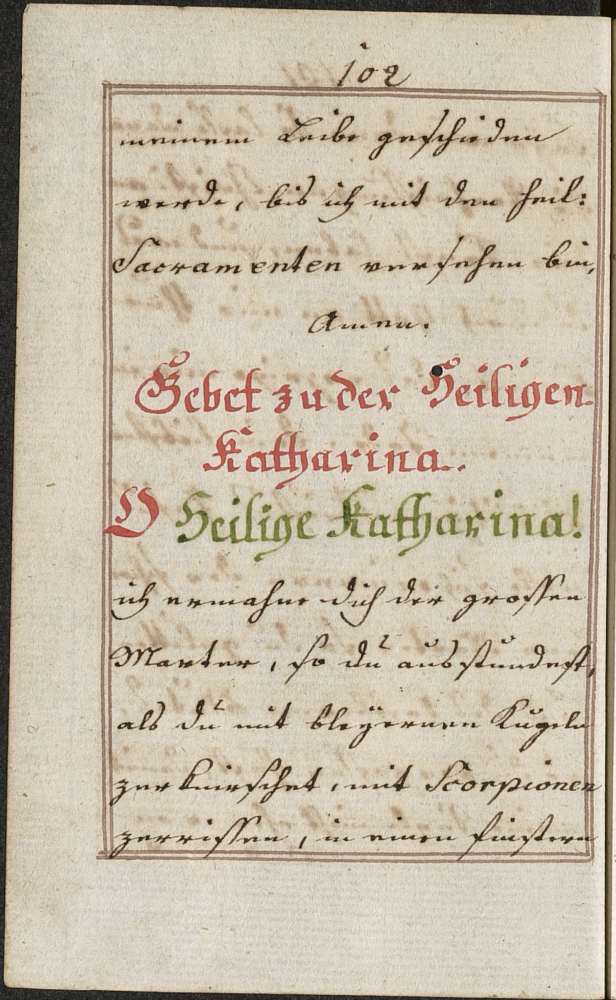 102
meinem Leibe geschieden
werde, bis ich mit den heil:
Sacramenten versehen bin,
Amen.
Gebet zu der Heiligen
Katharina.
O Heilige Katharina!
ich ermahne dich der grossen
Marter, so du ausstundest,
als du mit bleyernen Kugeln
zerknirschet, mit Scorpionen
zerrissen, in einen finstern